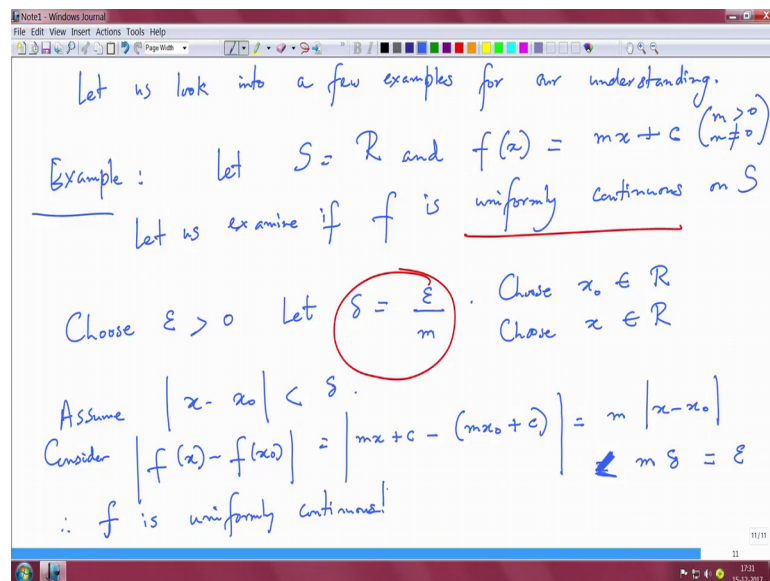 Note1 - Windows Journal
File Edit View Insert Actions Tools Help
Page Width
Let us look into a few examples for our understanding.
Example : Let S = R and f(x) = mx + c (m > 0 m ≠ 0)
Let us examine if f is uniformly continuous on S
Choose ε > 0 Let δ = ε/m . Choose x₀ ∈ R
Choose x ∈ R
Assume |x - x₀| < δ.
Consider |f(x) - f(x₀)| = |mx + c - (mx₀ + c)| = m |x - x₀|
< m δ = ε
∴ f is uniformly continuous!
11/11
11
17:31
15-12-2017